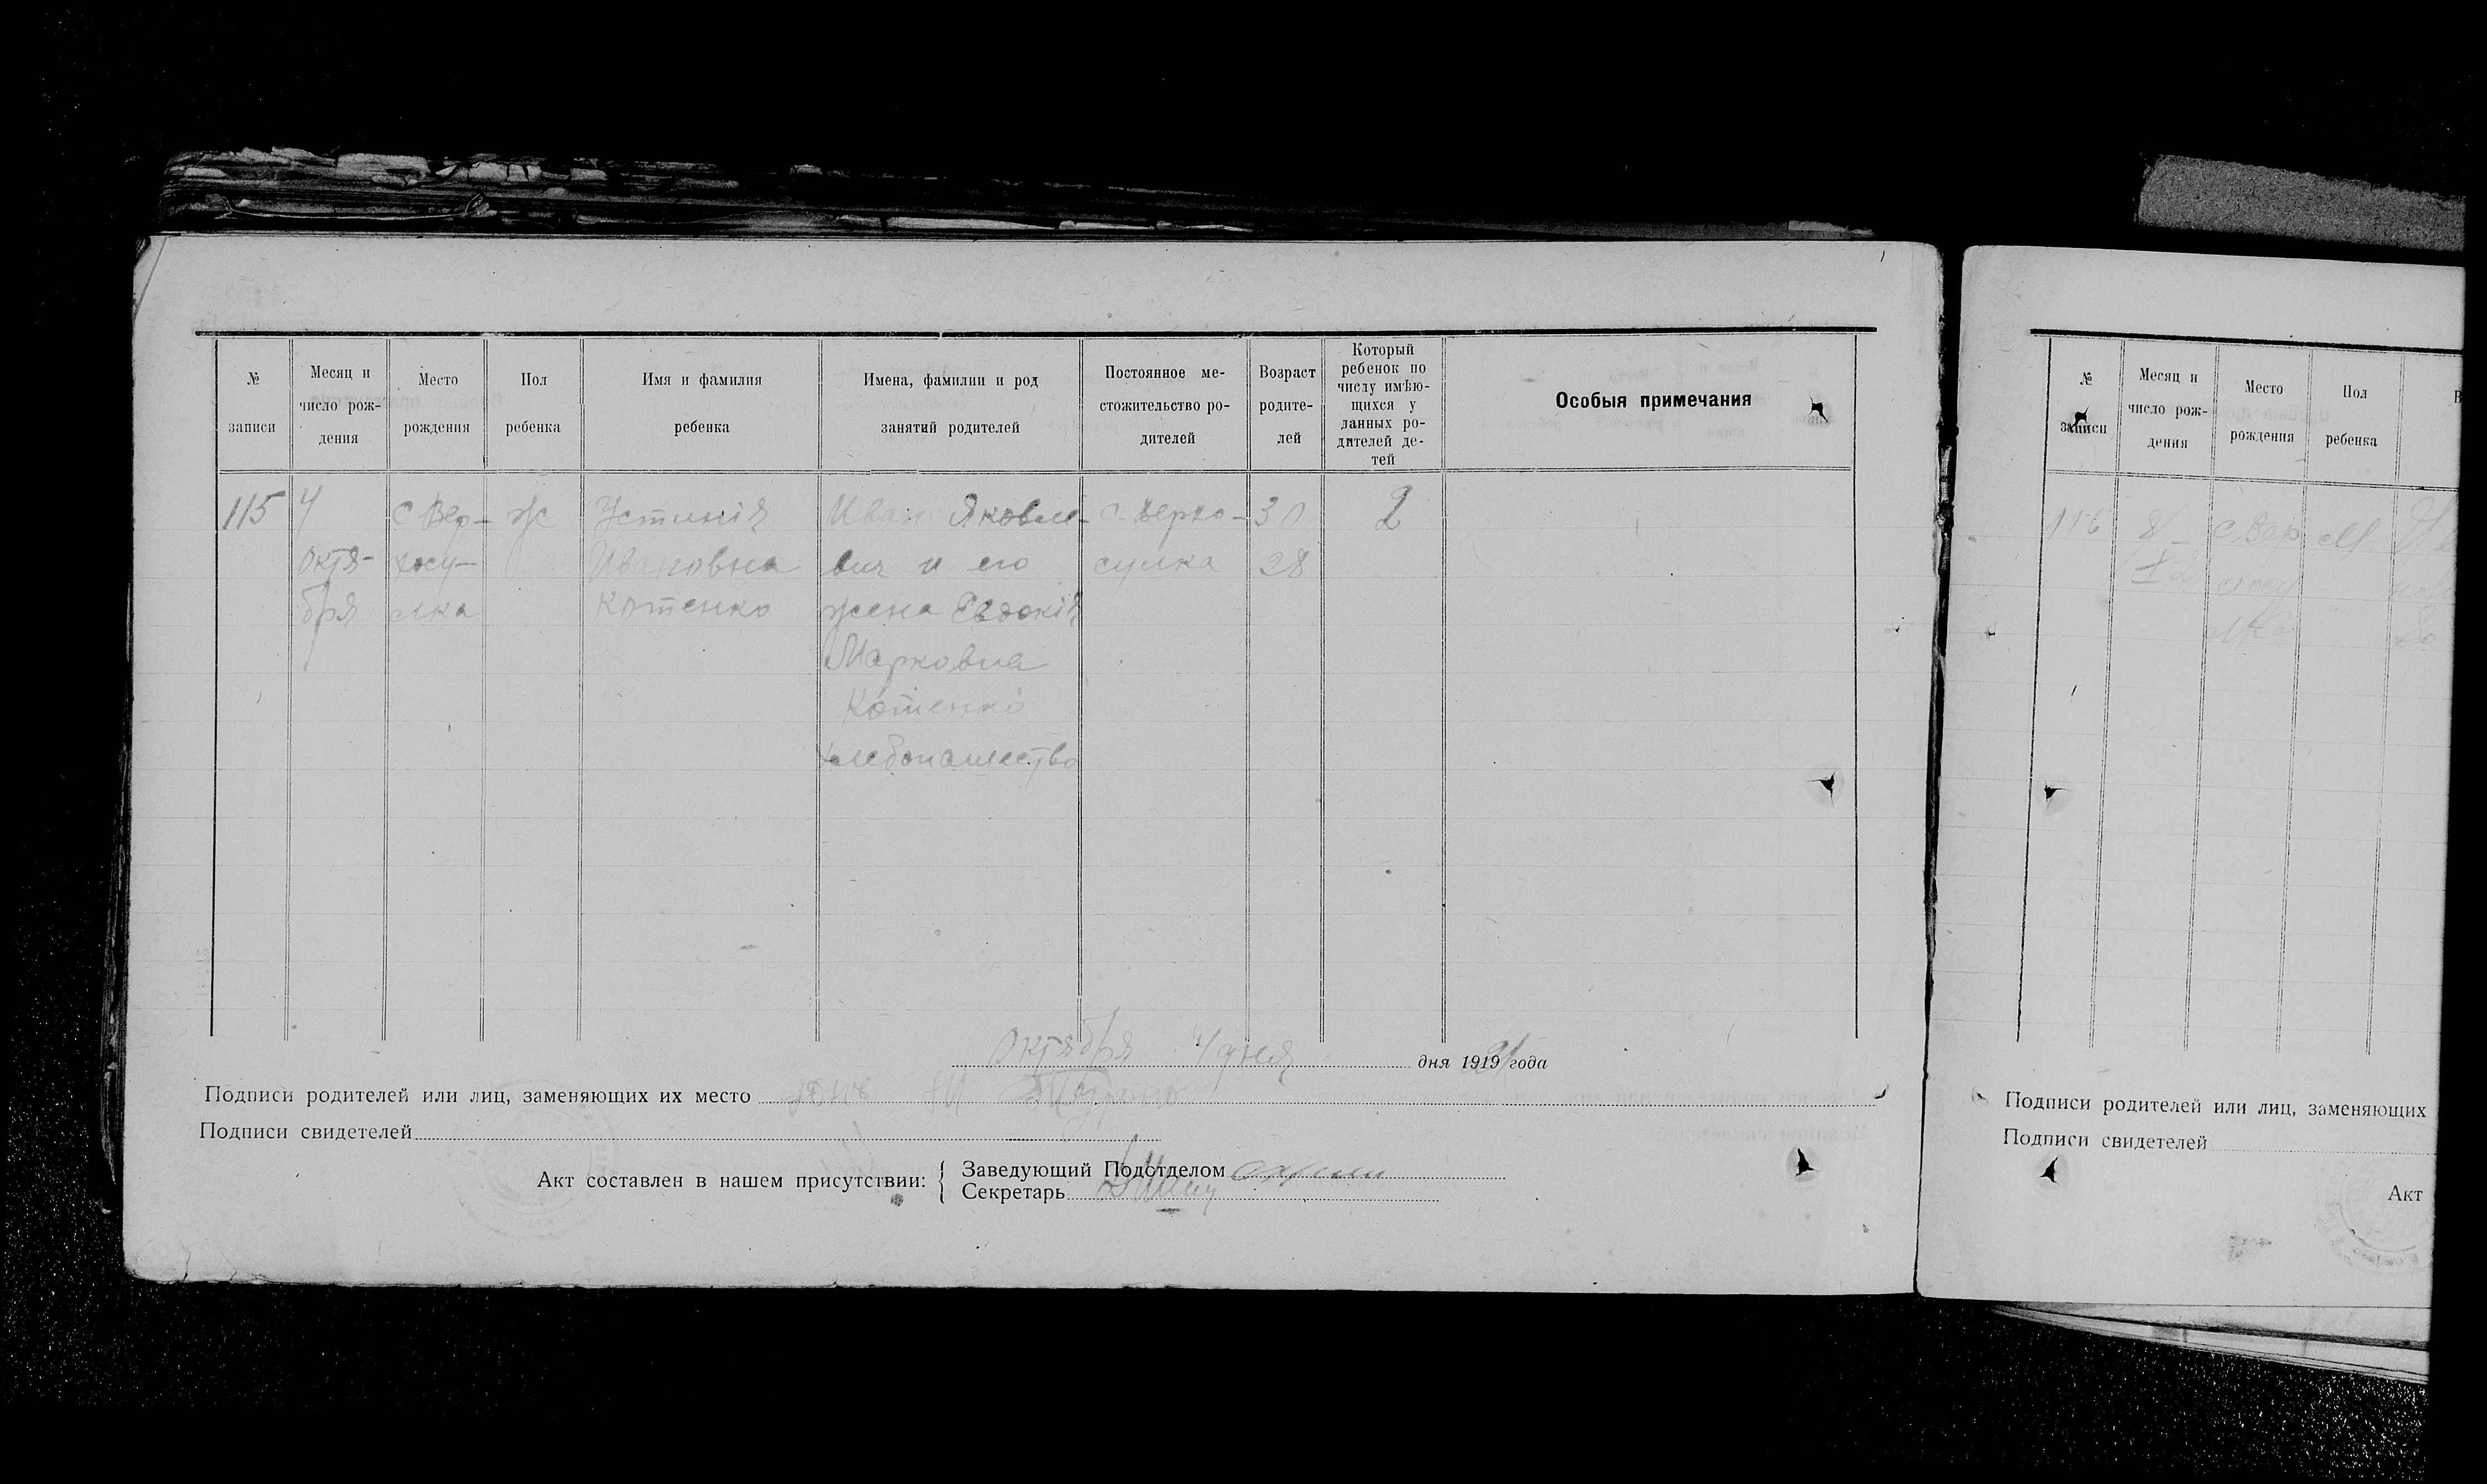 № записи
Месяц и число рождения
Место рождения
Пол ребенка
Имя и фамилия ребенка
Имена, фамилии и род занятий родителей
Постоянное местожительство родителей
Возраст родителей
Который ребенок по числу имѣющихся у данных родителей детей
Особыя примечания
115
4
октя-
бря
с Вер-
хосу-
лка
ж
Устинія
Ивановна
Котенко
Иван Яковле-
вич и его
жена Евдокія
Марковна
Котенко
хлебопашество
с. Верхо-
сулка
30
28
2
Октября 4 дня дня 1919 года
Подписи родителей или лиц, заменяющих их место
Подписи свидетелей
Акт составлен в нашем присутствии:
Заведующий Подотделом
Секретарь
№ записи
Месяц и число рождения
Место рождения
Пол ребенка
116
8
с. Вер
М
Подписи родителей или лиц, заменяющих
Подписи свидетелей
Акт